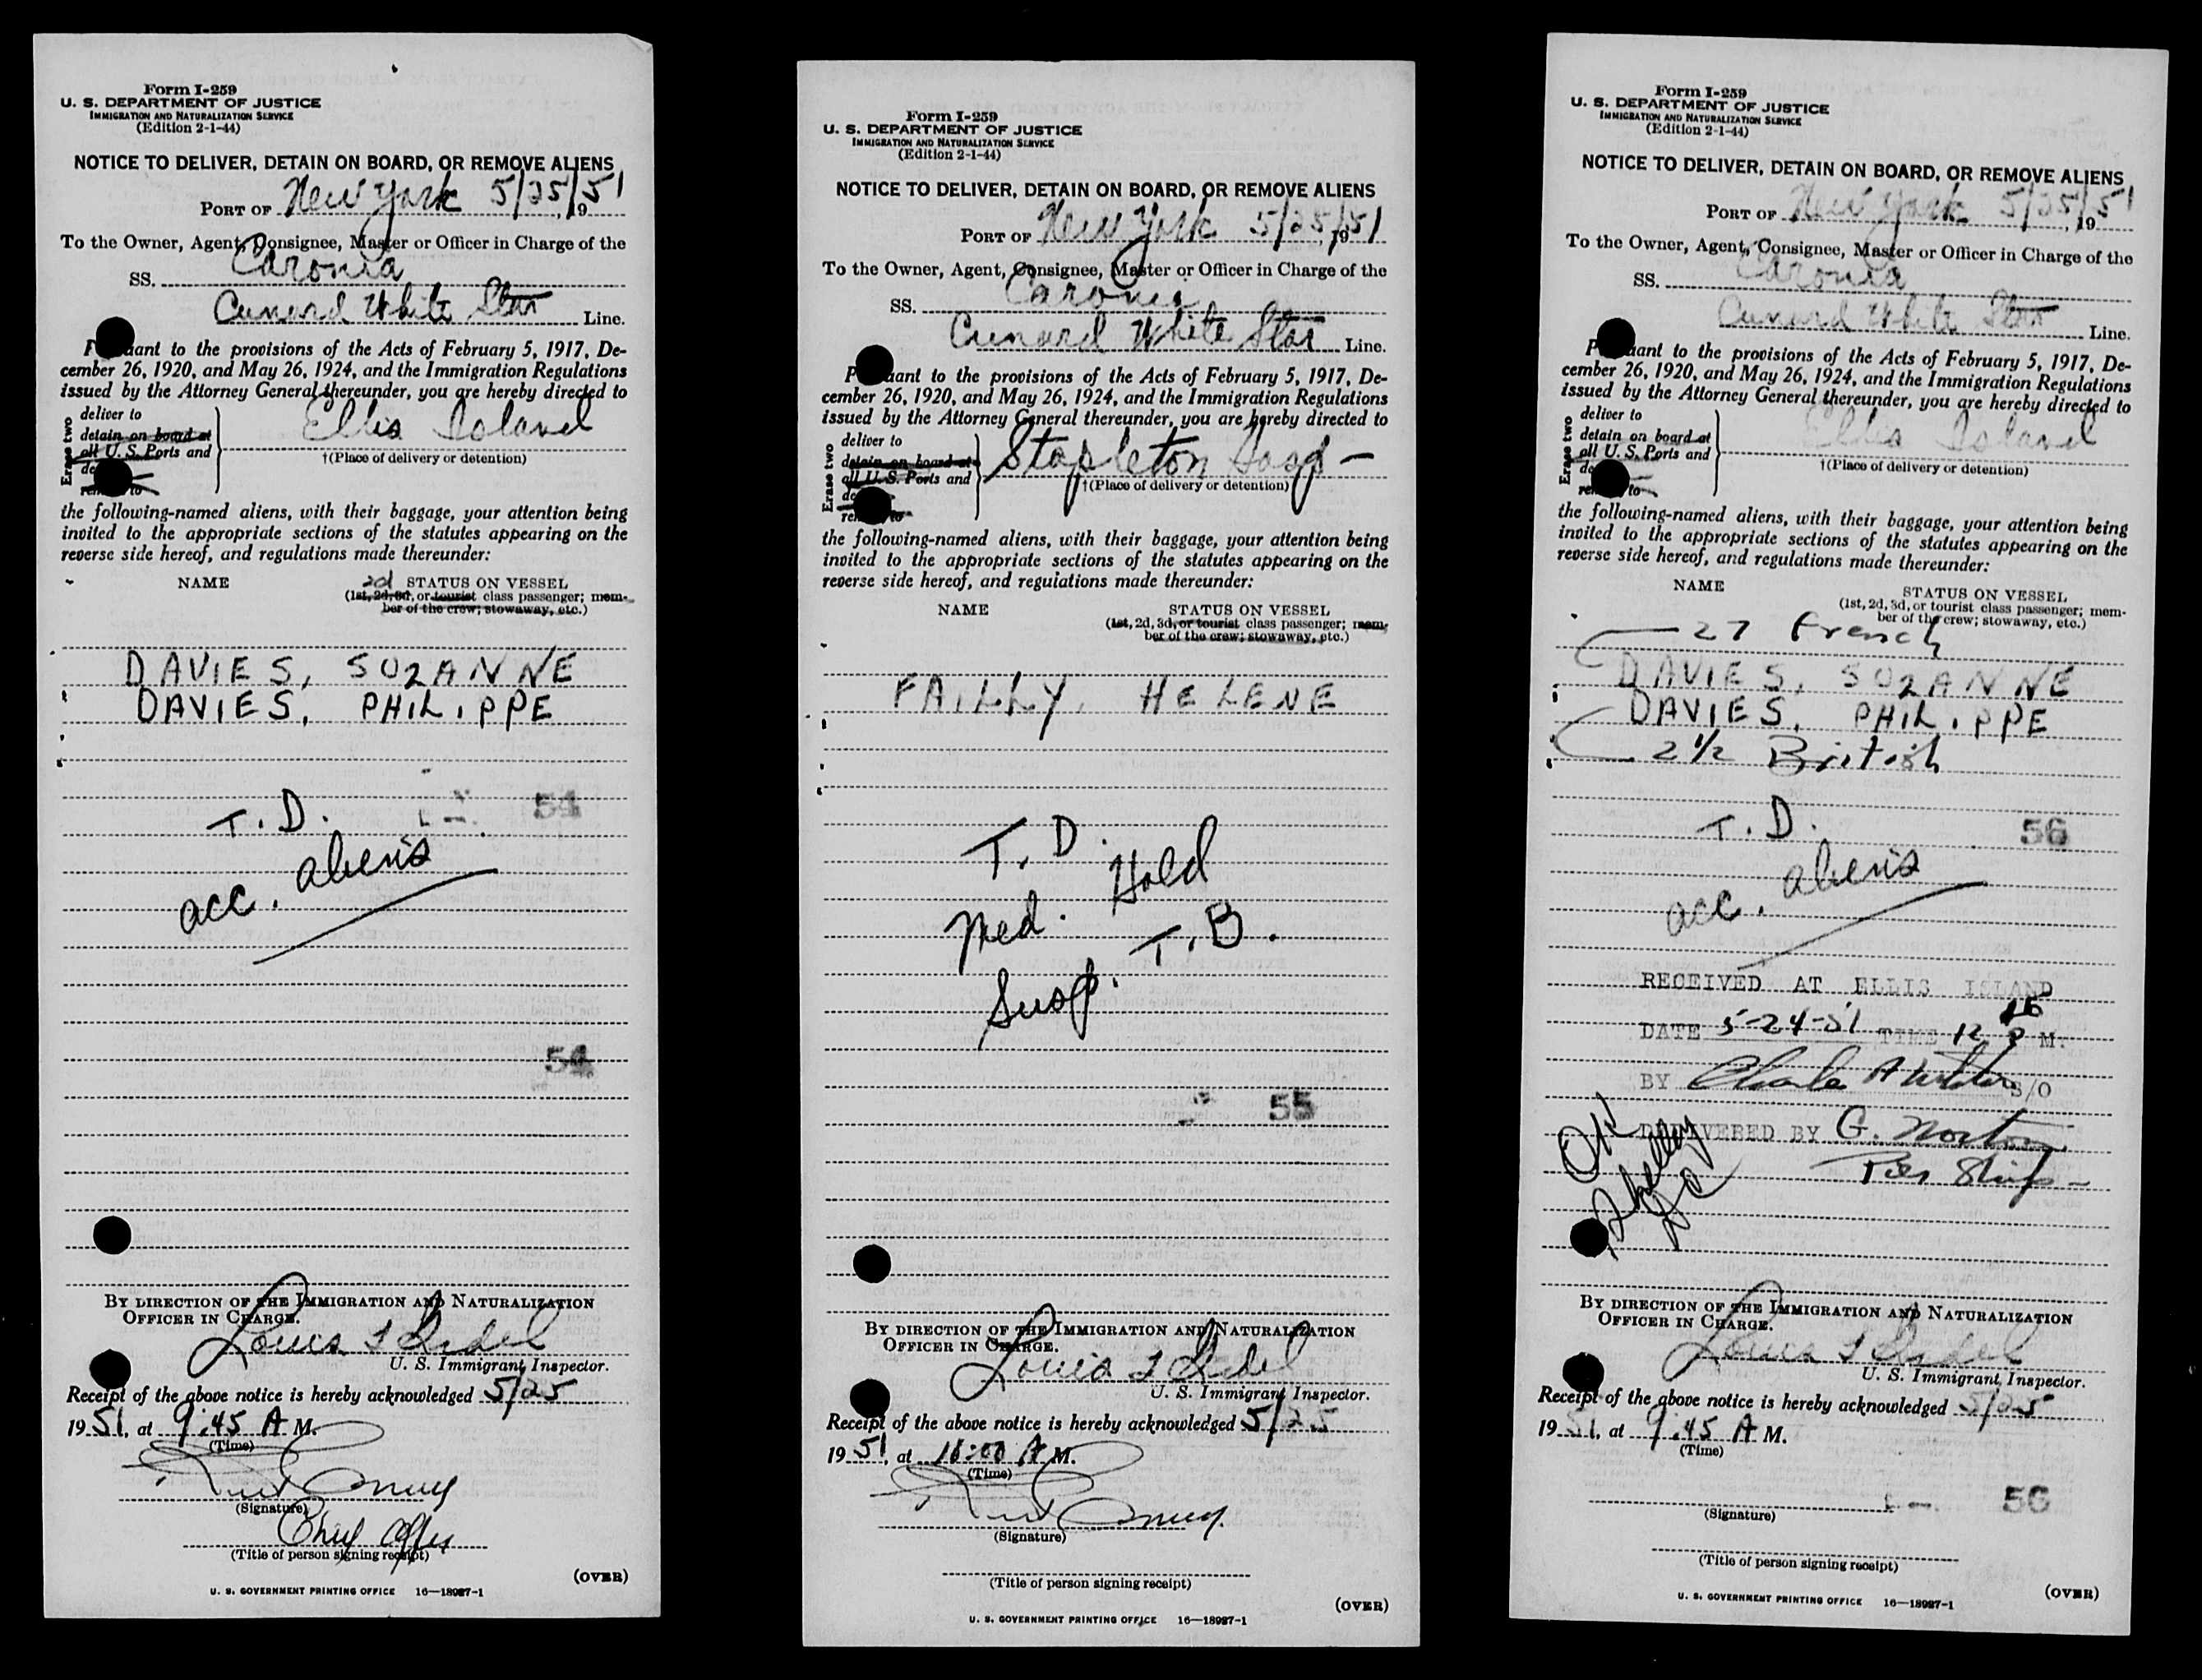 Form I-259
U. S. DEPARTMENT OF JUSTICE
IMMIGRATION AND NATURALIZATION SERVICE
(Edition 2-1-44)
NOTICE TO DELIVER, DETAIN ON BOARD, OR REMOVE ALIENS
PORT OF New York 5/25/51, 19
To the Owner, Agent, Consignee, Master or Officer in Charge of the
SS. Caronia
Cunard White Star Line.
Pursuant to the provisions of the Acts of February 5, 1917, De-
cember 26, 1920, and May 26, 1924, and the Immigration Regulations
issued by the Attorney General thereunder, you are hereby directed to
Erase two
deliver to
detain on board at
all U. S. Ports and
Ellis Island
†(Place of delivery or detention)
the following-named aliens, with their baggage, your attention being
invited to the appropriate sections of the statutes appearing on the
reverse side hereof, and regulations made thereunder:
NAME 2d STATUS ON VESSEL
(1st, 2d, 3d, or tourist class passenger; mem-
ber of the crew; stowaway, etc.)
DAVIES, SUZANNE
DAVIES, PHILIPPE
54
T. D.
acc. aliens
54
BY DIRECTION OF THE IMMIGRATION AND NATURALIZATION
OFFICER IN CHARGE.
Louis
U. S. Immigrant Inspector.
Receipt of the above notice is hereby acknowledged 5/25
1951, at 9:45 A M.
(Time)
(Signature)
(Title of person signing receipt)
(OVER)
U. S. GOVERNMENT PRINTING OFFICE 16—18987-1
Form I-259
U. S. DEPARTMENT OF JUSTICE
IMMIGRATION AND NATURALIZATION SERVICE
(Edition 2-1-44)
NOTICE TO DELIVER, DETAIN ON BOARD, OR REMOVE ALIENS
PORT OF New York 5/25/51, 19
To the Owner, Agent, Consignee, Master or Officer in Charge of the
SS. Caronia
Cunard White Star Line.
Pursuant to the provisions of the Acts of February 5, 1917, De-
cember 26, 1920, and May 26, 1924, and the Immigration Regulations
issued by the Attorney General thereunder, you are hereby directed to
Erase two
deliver to
detain on board at
all U. S. Ports and
Stapleton Hosp
†(Place of delivery or detention)
the following-named aliens, with their baggage, your attention being
invited to the appropriate sections of the statutes appearing on the
reverse side hereof, and regulations made thereunder:
NAME STATUS ON VESSEL
(1st, 2d, 3d, or tourist class passenger; mem-
ber of the crew; stowaway, etc.)
FAILLY, HELENE
T. D.
Med. Hold
Susp. T. B.
55
BY DIRECTION OF THE IMMIGRATION AND NATURALIZATION
OFFICER IN CHARGE.
Louis
U. S. Immigrant Inspector.
Receipt of the above notice is hereby acknowledged 5/25
1951, at 10:00 A M.
(Time)
(Signature)
(Title of person signing receipt)
(OVER)
U. S. GOVERNMENT PRINTING OFFICE 16—18987-1
Form I-259
U. S. DEPARTMENT OF JUSTICE
IMMIGRATION AND NATURALIZATION SERVICE
(Edition 2-1-44)
NOTICE TO DELIVER, DETAIN ON BOARD, OR REMOVE ALIENS
PORT OF New York 5/25/51, 19
To the Owner, Agent, Consignee, Master or Officer in Charge of the
SS. Caronia
Cunard White Star Line.
Pursuant to the provisions of the Acts of February 5, 1917, De-
cember 26, 1920, and May 26, 1924, and the Immigration Regulations
issued by the Attorney General thereunder, you are hereby directed to
Erase two
deliver to
detain on board at
all U. S. Ports and
Ellis Island
†(Place of delivery or detention)
the following-named aliens, with their baggage, your attention being
invited to the appropriate sections of the statutes appearing on the
reverse side hereof, and regulations made thereunder:
NAME STATUS ON VESSEL
(1st, 2d, 3d, or tourist class passenger; mem-
ber of the crew; stowaway, etc.)
27 French
DAVIES, SUZANNE
DAVIES, PHILIPPE
2 1/2 British
T. D.
56
acc. aliens
RECEIVED AT ELLIS ISLAND
DATE 5-24-51 TIME 12 15 P M.
BY S/O
DELIVERED BY G. Norton
OK
BY DIRECTION OF THE IMMIGRATION AND NATURALIZATION
OFFICER IN CHARGE.
Louis
U. S. Immigrant Inspector.
Receipt of the above notice is hereby acknowledged 5/25
1951, at 9:45 A M.
(Time)
(Signature)
56
(Title of person signing receipt)
(OVER)
U. S. GOVERNMENT PRINTING OFFICE 16—18987-1